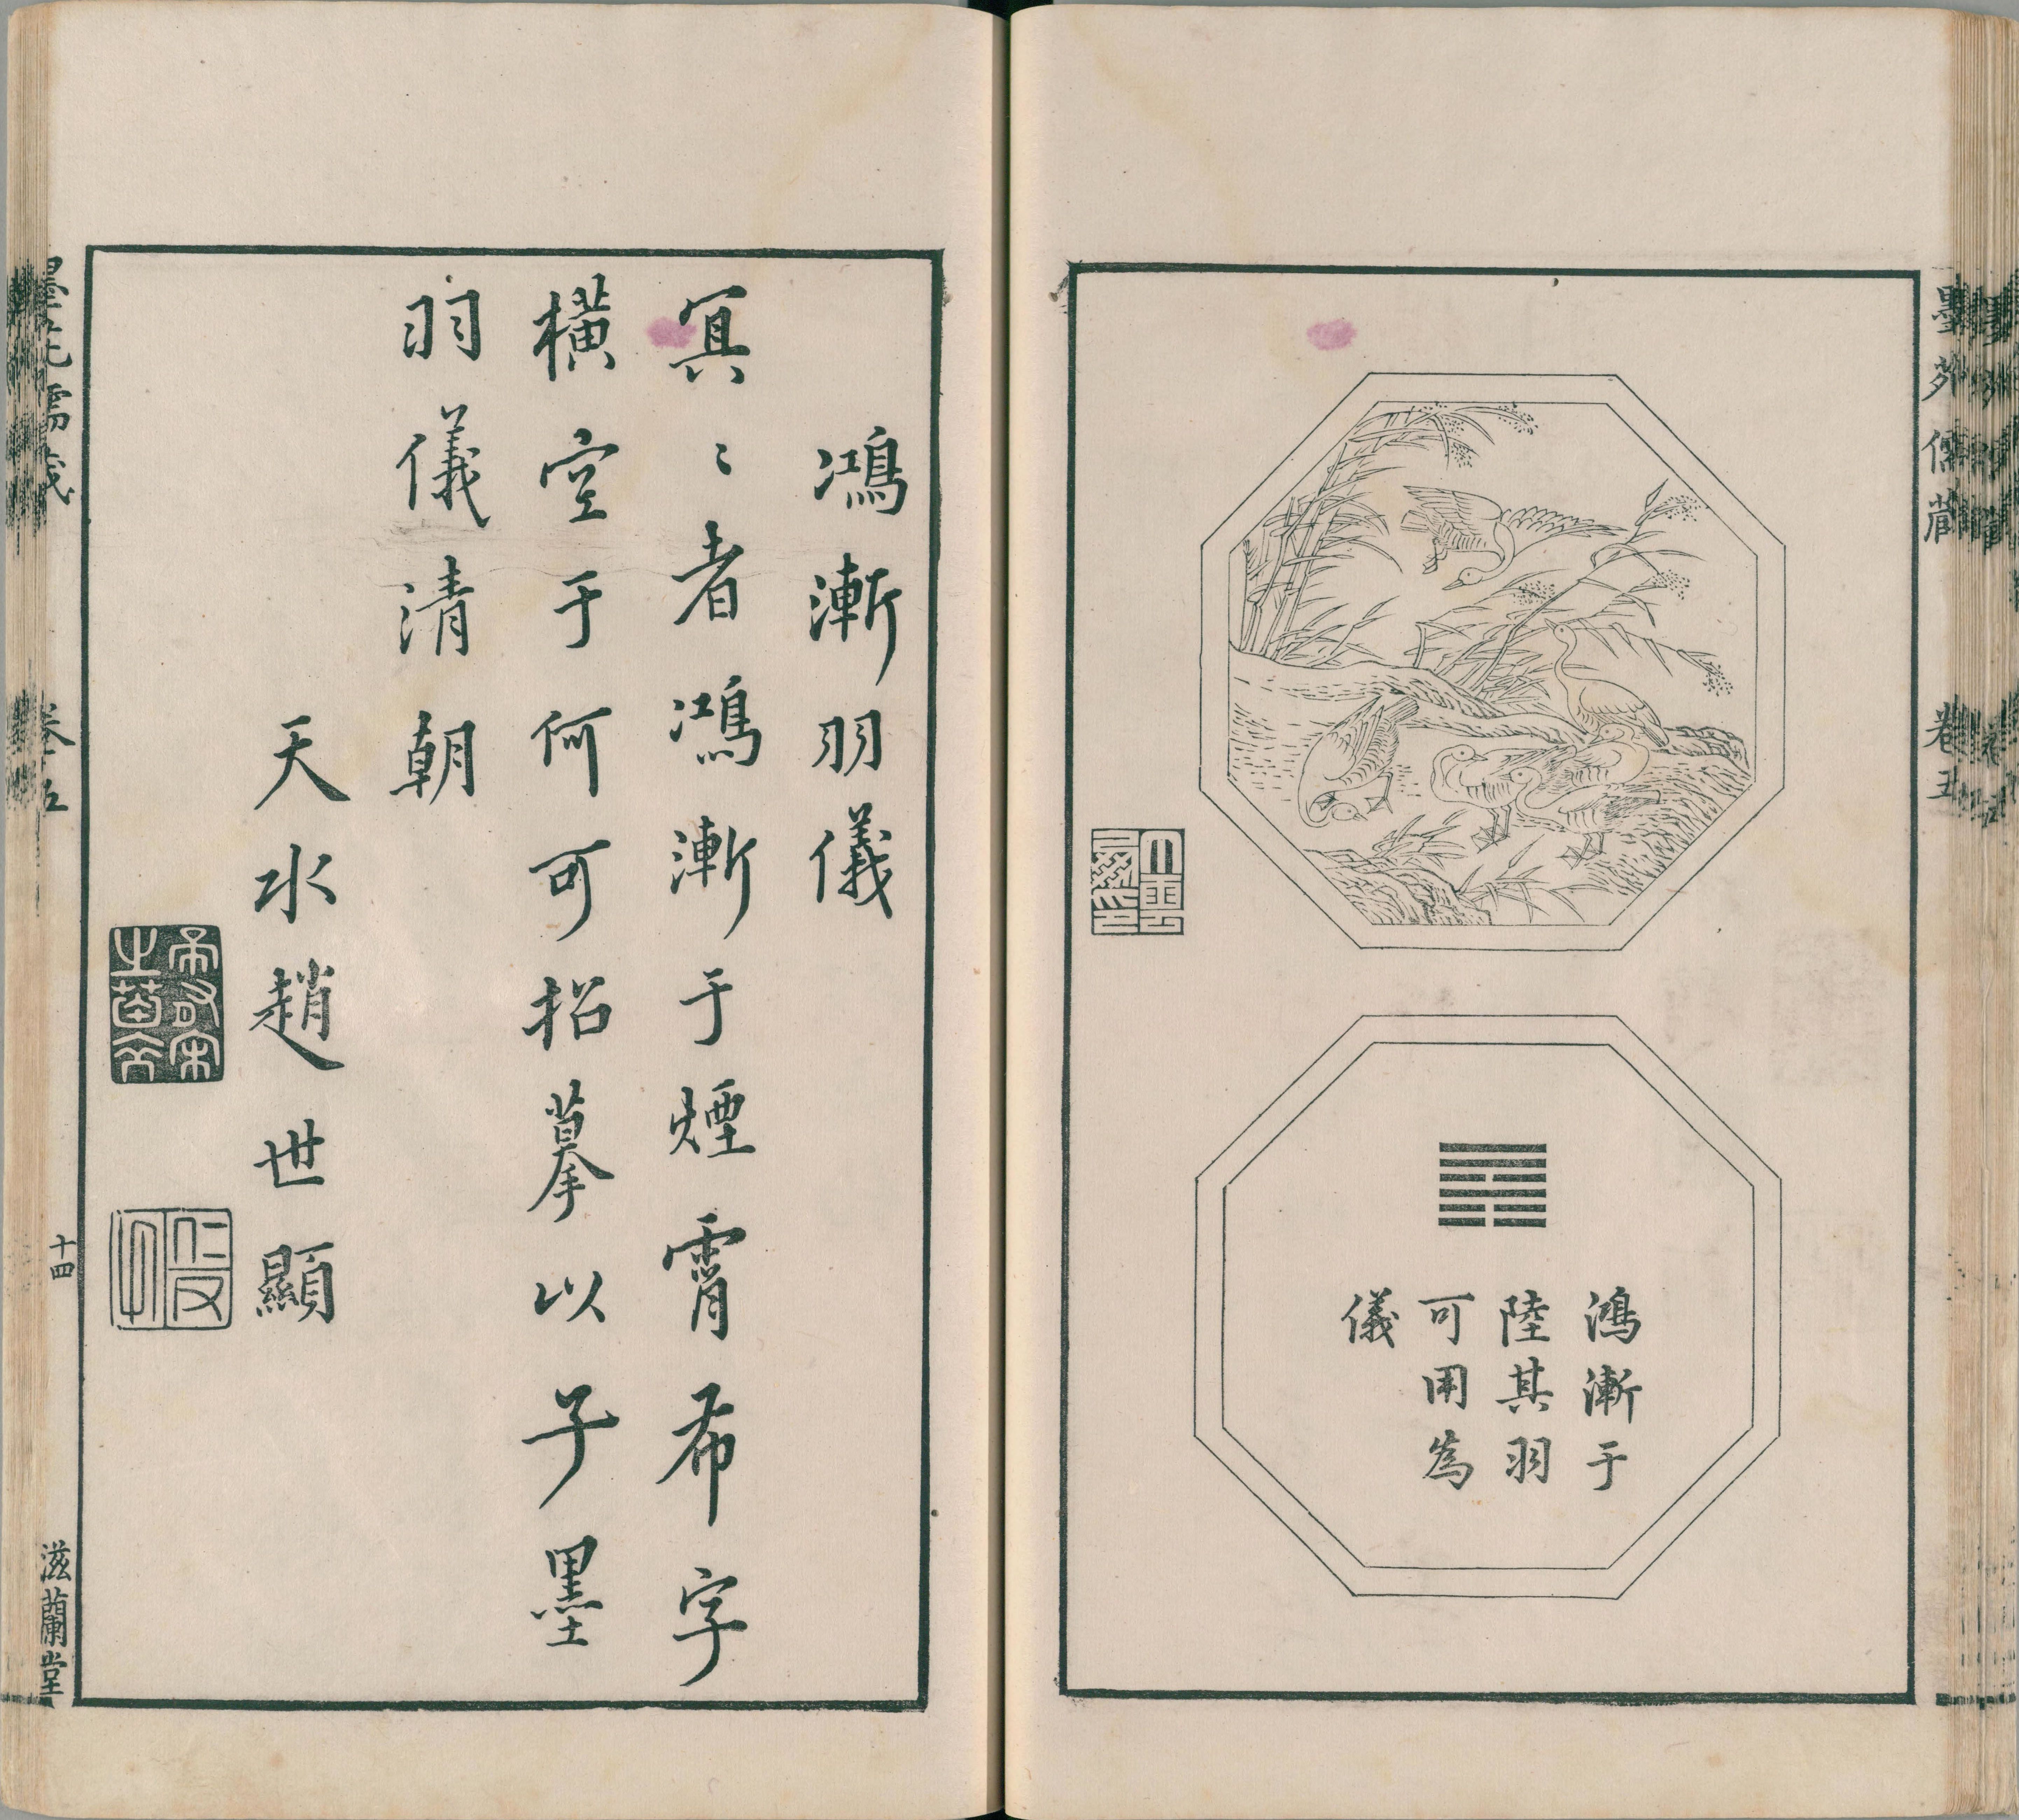 墨苑儒藏
卷五
鴻漸于
陸其羽
可用為
儀
鴻漸羽儀
冥〻者鴻漸于煙霄希字
橫空于何可招摹以子墨
羽儀清朝
天水趙世顯
墨苑儒藏
卷五
十四
滋蘭堂